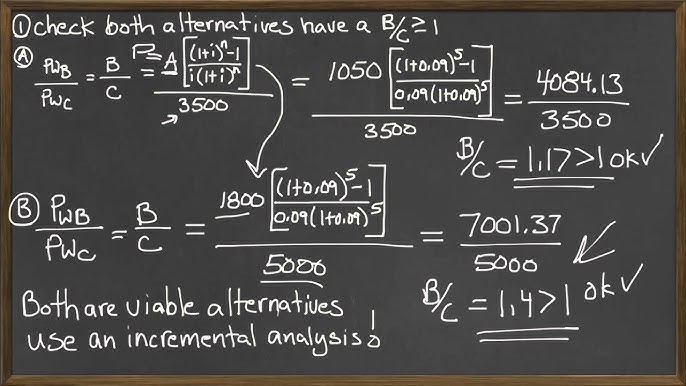 ① check both alternatives have a B/C ≥ 1
Ⓐ PWB/PWC = B/C = P=A[((1+i)^n-1)/(i(1+i)^n)]/3500 = 1050[((1+0.09)^5-1)/(0.09(1+0.09)^5)]/3500 = 4084.13/3500
B/C = 1.17>1 ok✓
Ⓑ PWB/PWC = B/C = 1800[((1+0.09)^5-1)/(0.09(1+0.09)^5)]/5000 = 7001.37/5000
B/C = 1.4>1 ok✓
Both are viable alternatives
use an incremental analysis!